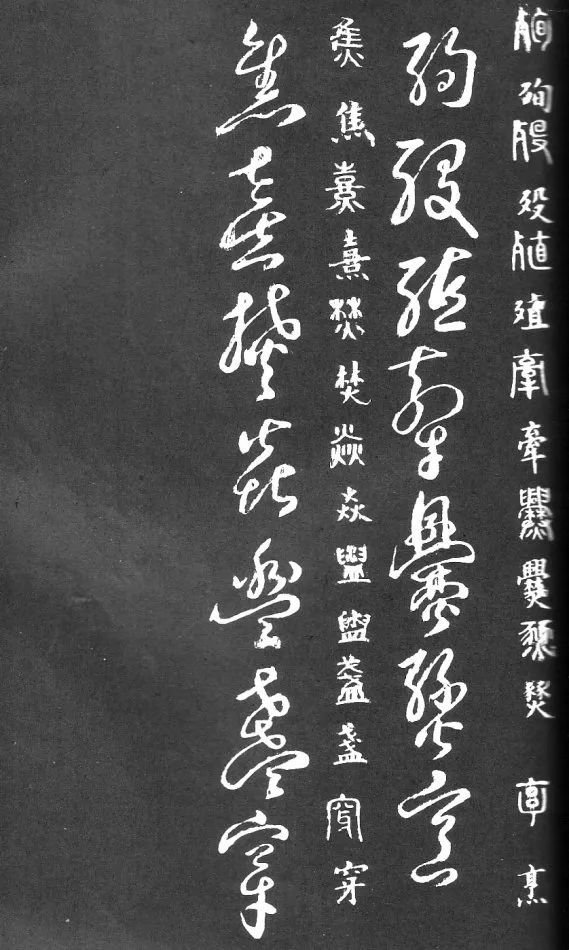 殉殉殁殁殖殖牽牽爨爨燹燹亯烹
殉殁殖牽爨燹烹
焦焦熹熹焚焚焱焱盥盥盞盞穿穿
焦熹焚焱盥盞穿